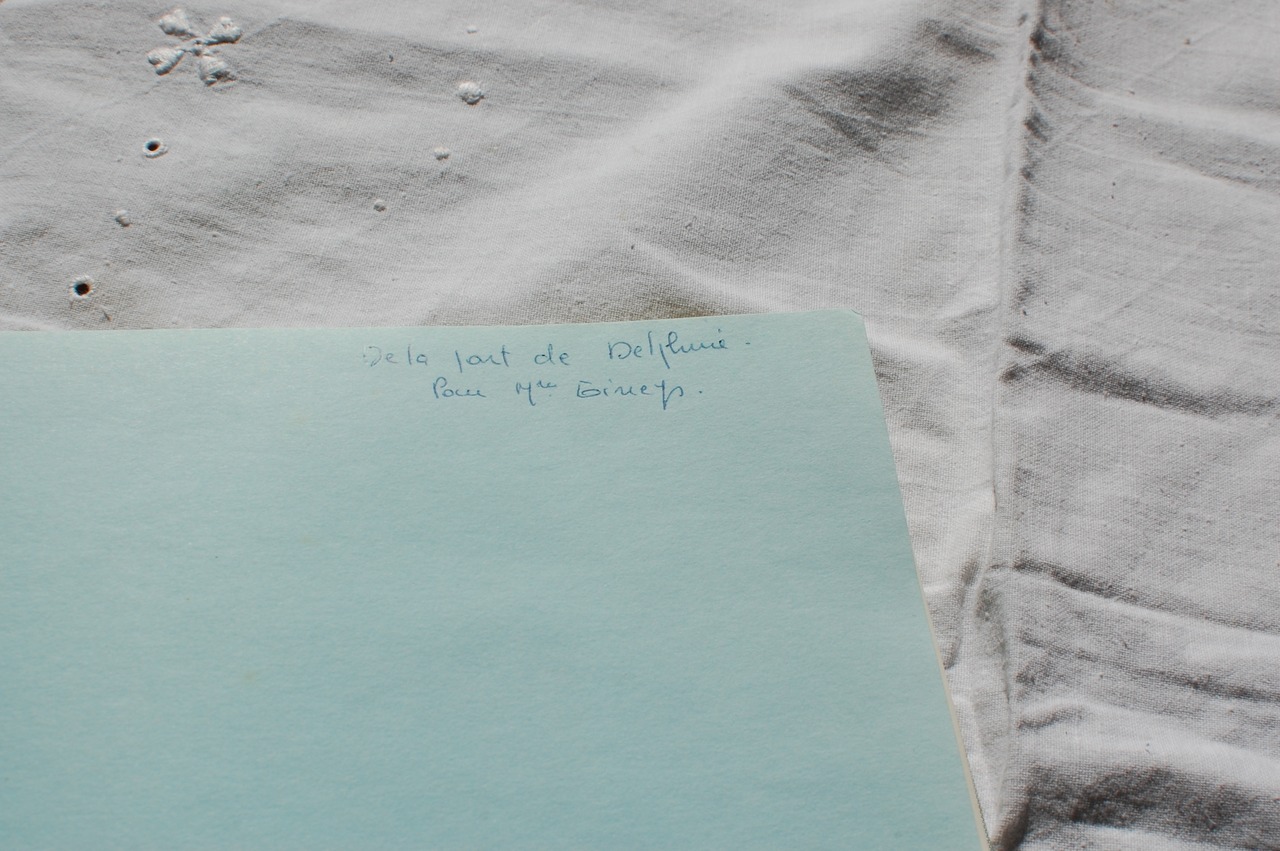 De la part de Delphine.
Pour Mme